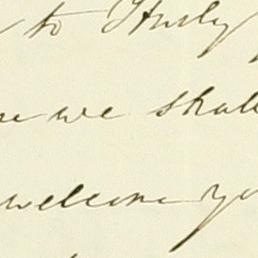 to Study
we shall
welcome yo